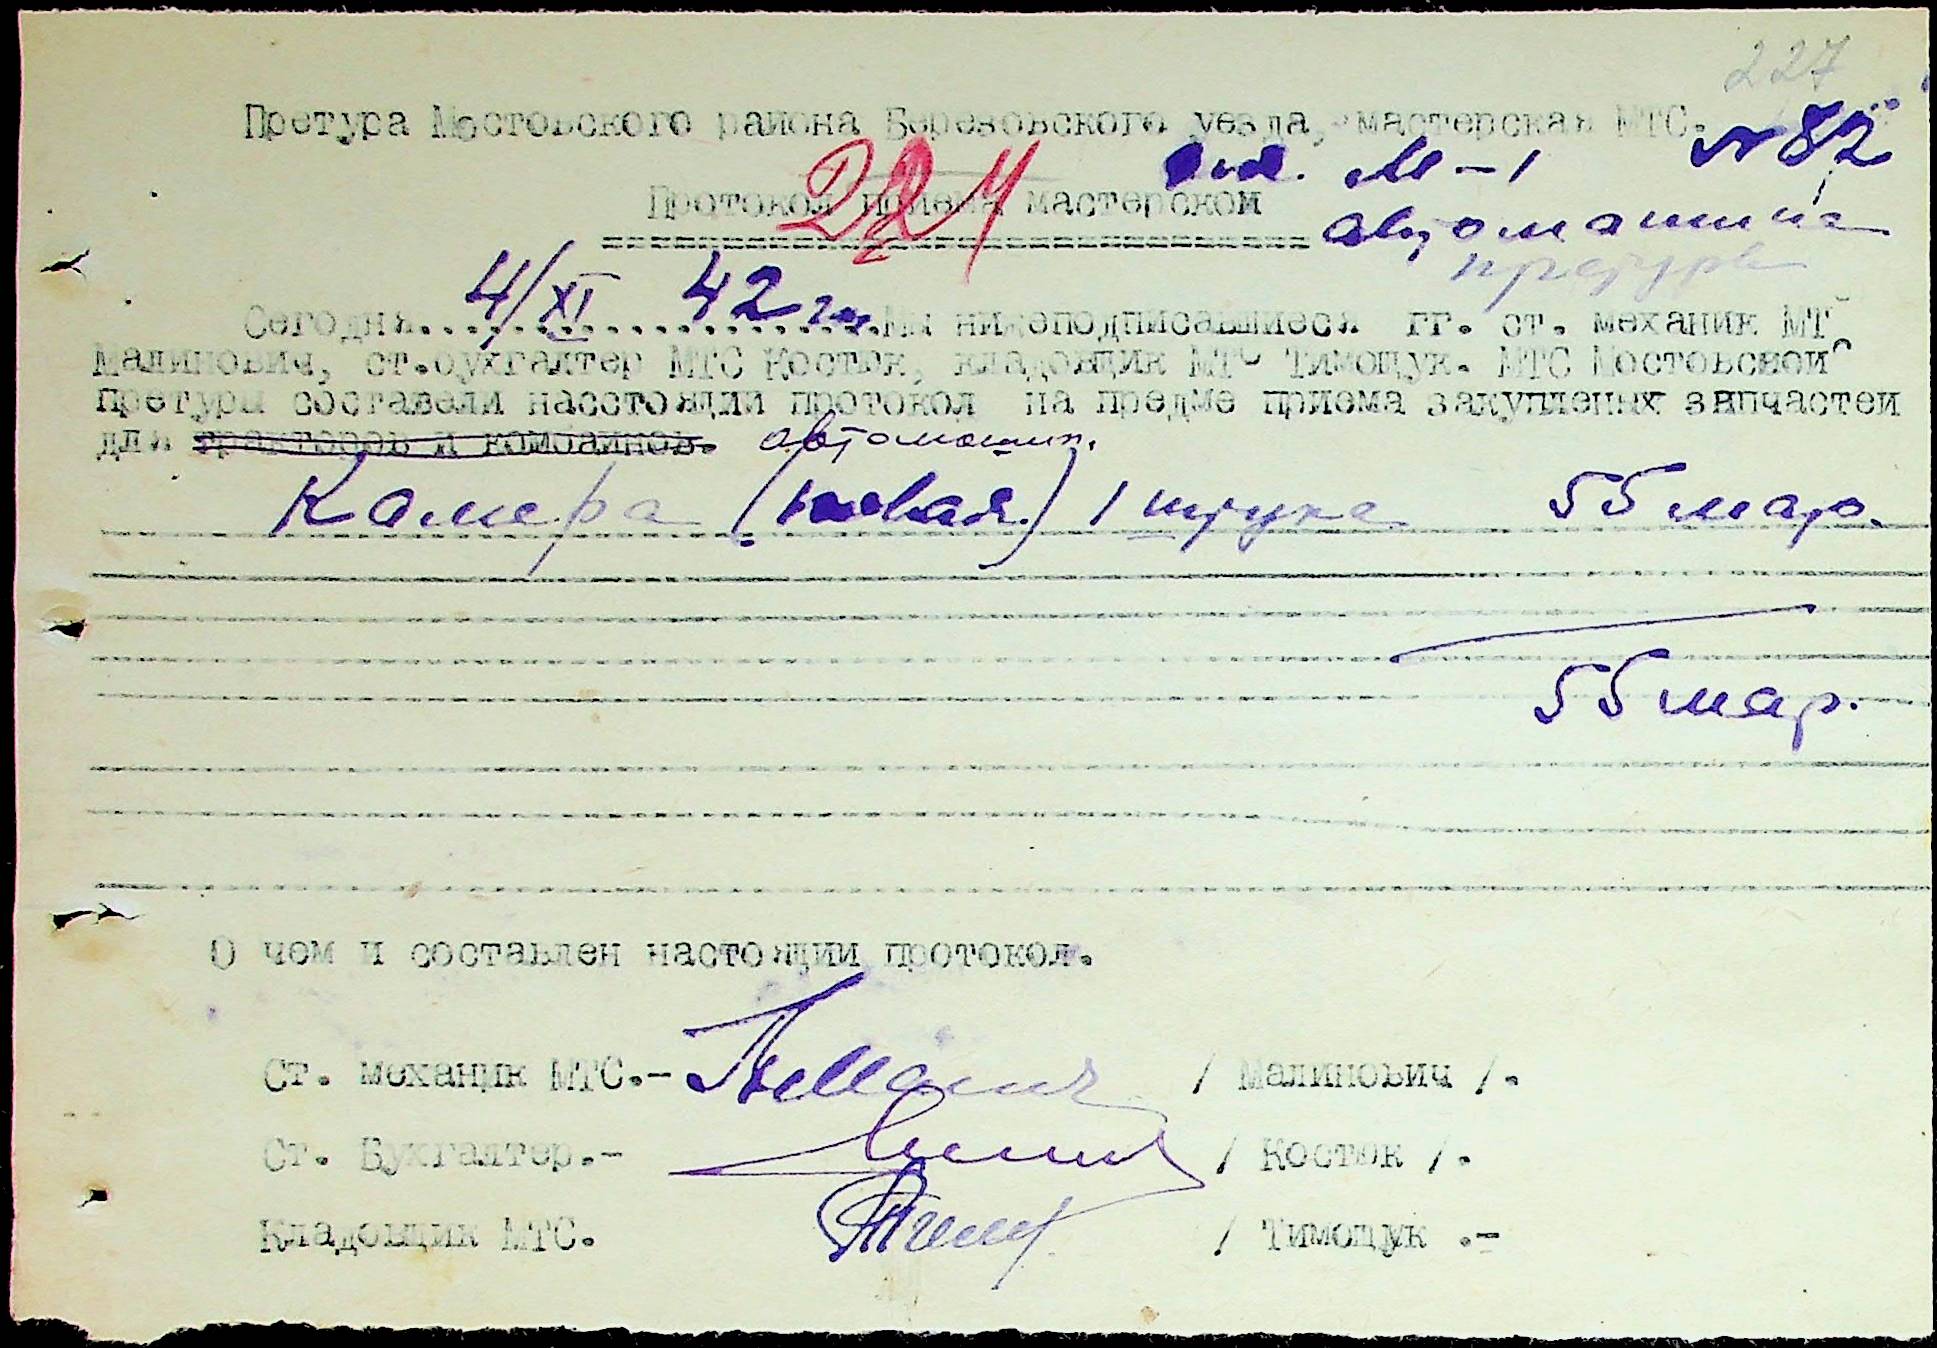 227
Претура Мостовского района Березовского уезда, мастерская МТС.
М-1 №82
224
Протокол приема мастерской
автомашина
претуры
4/XI 42 г.
Сегодня....................Мы нижеподписавшиеся гг. ст. механик МТС
Малинович, ст.бухгалтер МТС Костюк, кладовщик МТС Тимощук. МТС Мостовской
претуры составели насстоящий протокол на предме приема закупленых запчастей
для тракторов и комбайнов. автомашин.
Камера (новая) 1 штука 55 мар.
55 мар.
О чем и составлен настоящий протокол.
Ст. механик МТС.- / Малинович /.
Ст. Бухгалтер.- / Костюк /.
Кладовщик МТС. / Тимощук .-